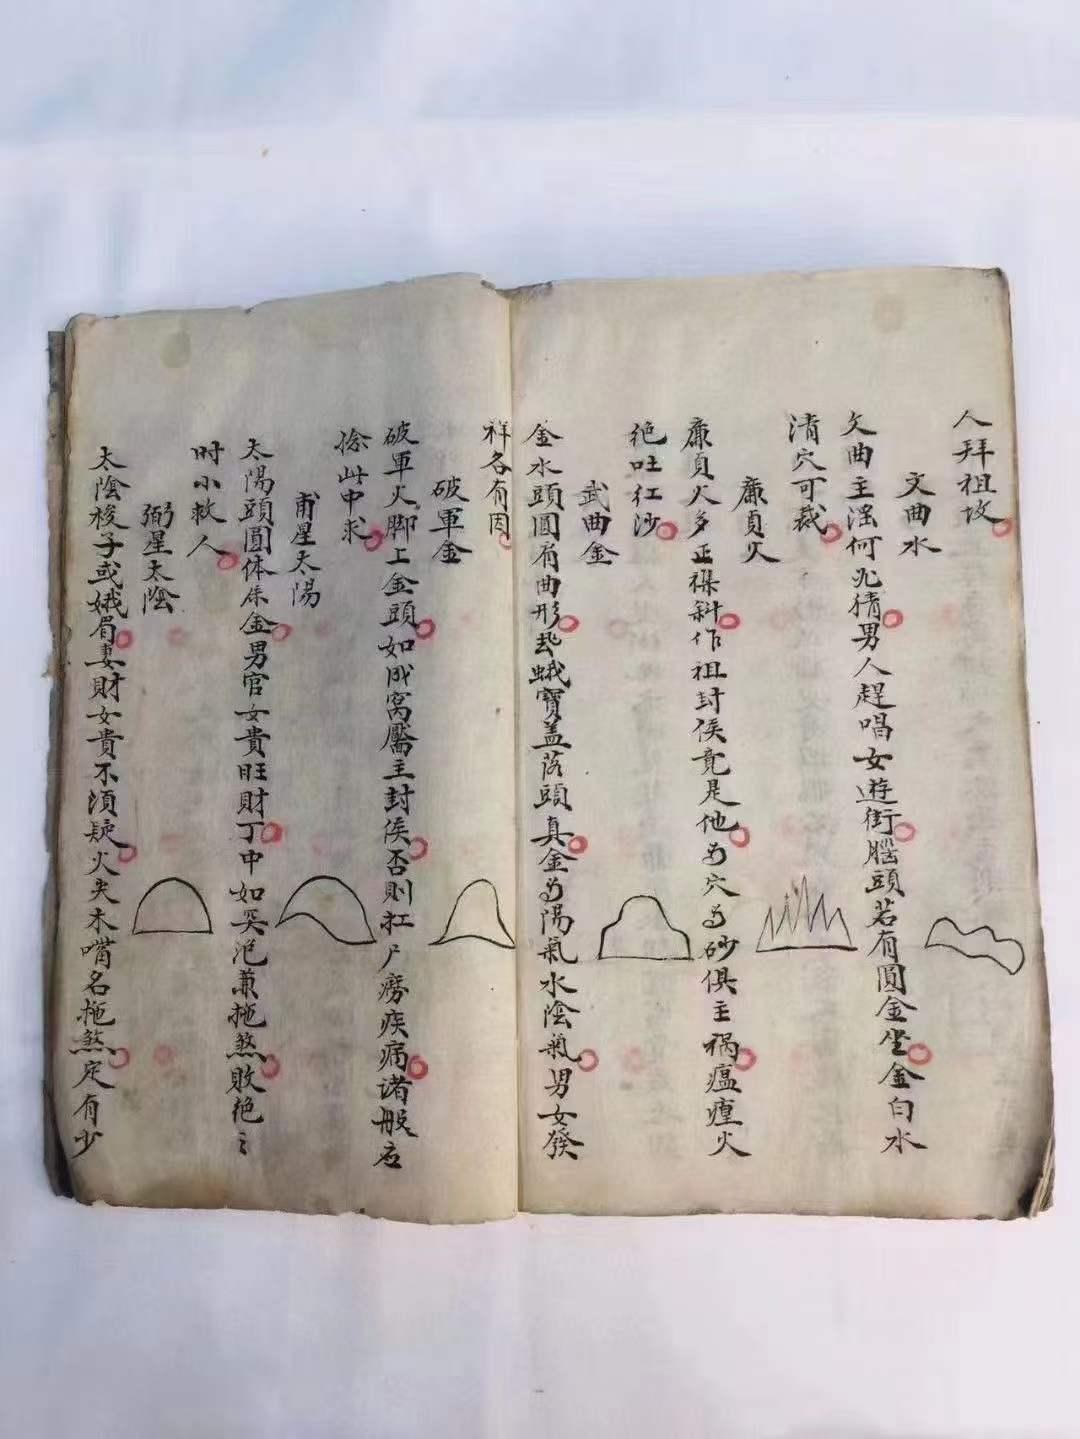 人拜祖坟
文曲水
文曲主滛何必猜男人趕唱女遊街腦頭若有圓金坐金白水
清穴可裁
廉貞火
廉貞火多正禄斜作祖封侯竟是他为穴为砂俱主祸瘟㾏火
绝吐红沙
武曲金
金水頭圓有曲形蛾寶盖落頭真金为陽氣水陰氣男女發
祥各有因
破軍金
破軍火脚上金頭如成窝靨主封侯否則扛尸痨疾病诸般应
捻此中求
甫星太陽
太陽頭圓体係金男官女貴旺財丁中如突氾兼拖煞敗绝之
时小救人
弼星太陰
太陰梭子或娥眉妻財女貴不須疑火尖木嘴名拖煞定有少